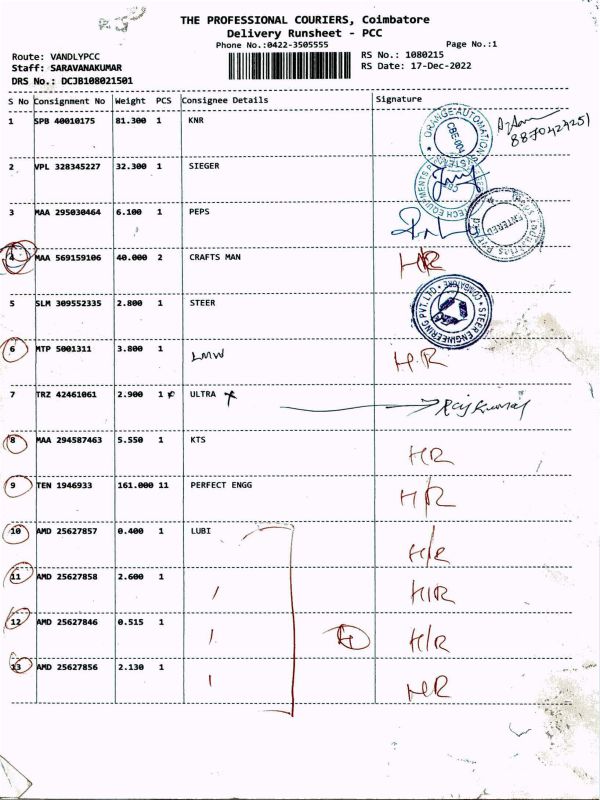 THE PROFESSIONAL COURIERS, Coimbatore
Delivery Runsheet - PCC
Phone No.:0422-3505555
Page No.:1
Route: VANDLYPCC
Staff: SARAVANAKUMAR
DRS No.: DCJB108021501
RS No.: 1080215
RS Date: 17-Dec-2022
S No Consignment No Weight PCS Consignee Details Signature
1 SPB 40010175 81.300 1 KNR
ORANGE AUTOMATION CBE-004
8870424251
2 VPL 328345227 32.300 1 SIEGER
3 MAA 295030464 6.100 1 PEPS
ENTERED
4 MAA 569159106 40.000 2 CRAFTS MAN HR
5 SLM 309552335 2.800 1 STEER
STEER ENGINEERING PVT.LTD COIMBATORE
6 MTP 5001311 3.800 1 LMW H.R
7 TRZ 42461061 2.900 1 ULTRA Rajkumar
8 MAA 294587463 5.550 1 KTS HR
9 TEN 1946933 161.000 11 PERFECT ENGG H/R
10 AMD 25627857 0.400 1 LUBI H/R
11 AMD 25627858 2.600 1 HIR
12 AMD 25627846 0.515 1 4 H/R
13 AMD 25627856 2.130 1 HR